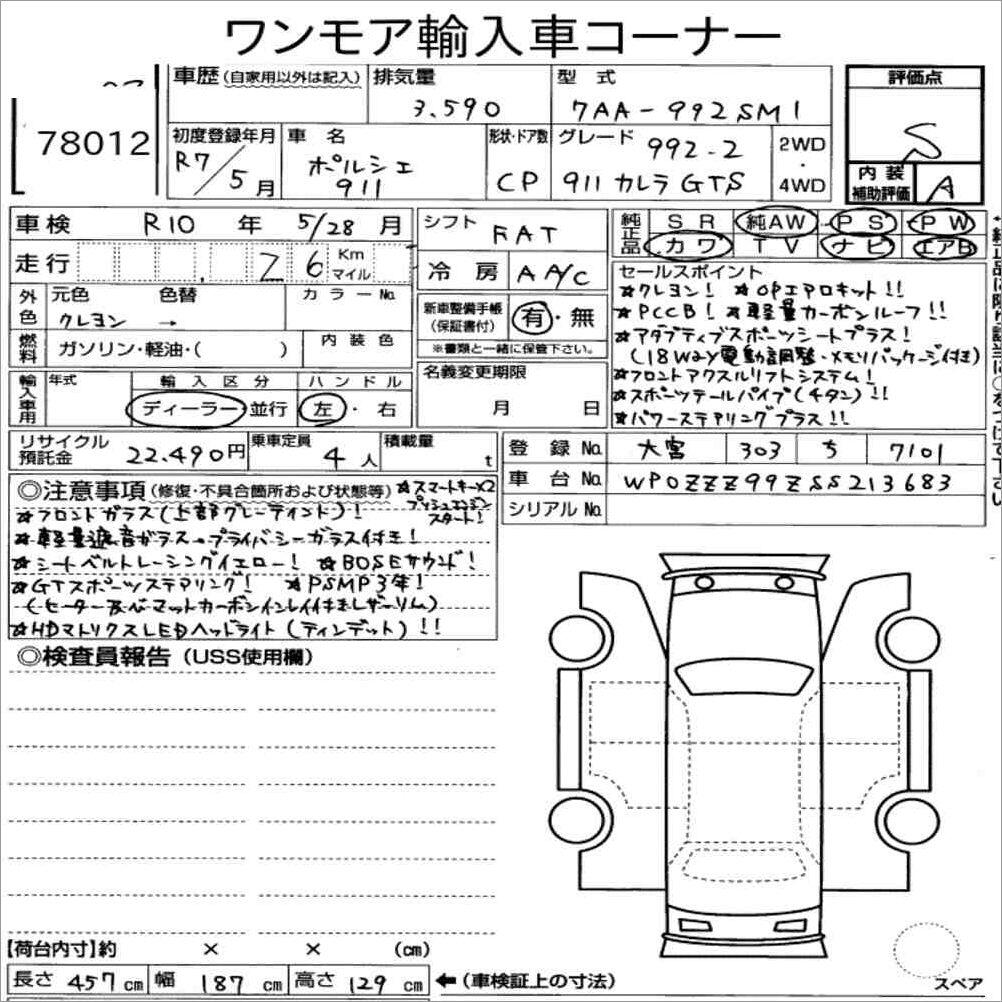 ワンモア輸入車コーナー
78012
車歴 (自家用以外は記入)
排気量
3.590
型 式
7AA-992SM1
評価点
S
初度登録年月
R7/5月
車 名
ポルシェ
911
形状・ドア数
CP
グレード 992-2
911 カレラ GTS
2WD
・
4WD
内 装
補助評価
A
車検 R10 年 5/28 月
走行 26 Km
マイル
外色
元色 色替 カラーNo.
クレヨン →
燃料
ガソリン・軽油・( )
内 装 色
輸入車用
年式
輸 入 区 分
ディーラー・並行
ハ ン ド ル
左・右
シフト FAT
冷 房 AA/C
新車整備手帳
(保証書付)
有・無
※書類と一緒に保管下さい。
名義変更期限
月 日
純正品
SR 純AW PS PW
カワ TV ナビ エアB
セールスポイント
★クレヨン! ★OPエアロキット!!
★PCCB! ★軽量カーボンルーフ!!
★アダプティブスポーツシートプラス!
(18Way電動調整・メモリパッケージ付き)
★フロントアクスルリフトシステム!
★スポーツテールパイプ(チタン)!!
★パワーステアリングプラス!!
リサイクル
預託金
22.490円
乗車定員
4人
積載量
t
登 録 No. 大宮 303 ち 7101
車 台 No. WP0ZZZ99ZSS213683
シリアル No.
◎注意事項 (修復・不具合箇所および状態等) ★スマートキー×2
プッシュエンジン
スタート!
★フロントガラス(上部グレーティント)!
★軽量遮音ガラス・プライバシーガラス付き!
★シートベルトレーシングイエロー! ★BOSEサウンド!
★GTスポーツステアリング! ★PSMP3年!
(ヒーター及べマットカーボンインレイ付きレザーリム)
★HDマトリクスLEDヘッドライト(ティンデット)!!
◎検査員報告 (USS使用欄)
【荷台内寸】約 × × (cm)
長さ 457 cm 幅 187 cm 高さ 129 cm
←(車検証上の寸法)
スペア